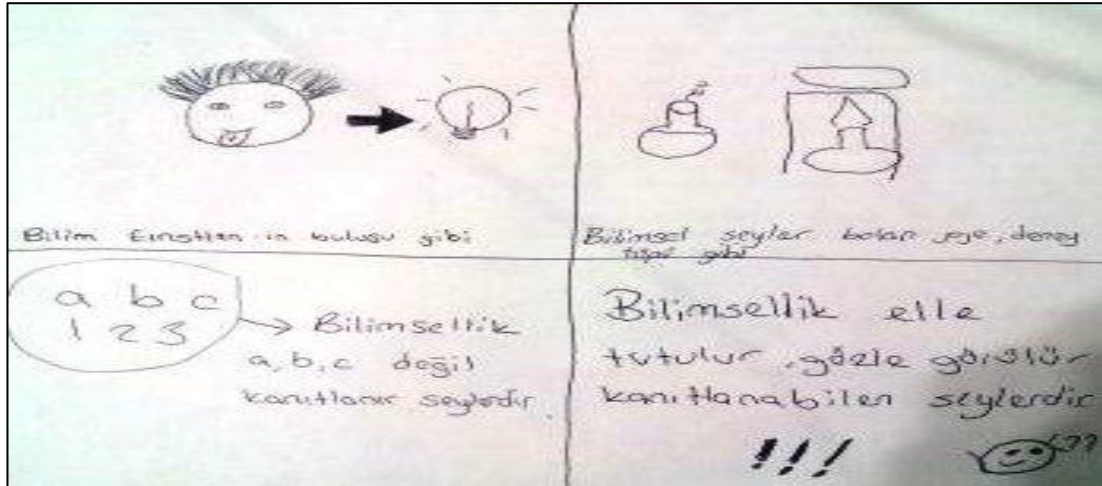 Bilim Einstien in buluşu gibi
Bilimsel şeyler balon joje, deney
tüpü gibi
a b c
1 2 3
Bilimsellik
a, b, c değil
kanıtlanır şeylerdir
Bilimsellik elle
tutulur, gözle görülür
kanıtlanabilen şeylerdir
!!!
???